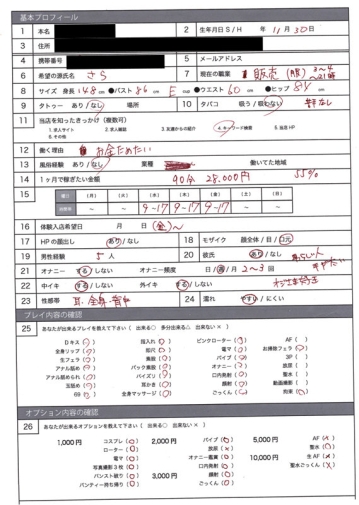 基本プロフィール
1 本名
2 生年月日 S / H 年 11 月 30 日
3 住所
4 携帯番号
5 メールアドレス
6 希望の源氏名 さら
7 現在の職業 販売(服)
8 サイズ 身長 148 cm ●バスト 86 cm E カップ ●ウエスト 60 cm ●ヒップ 84 cm
9 タトゥー あり / なし 場所
10 タバコ 吸う / 吸わない
11 当店を知ったきっかけ(複数可)
1.求人サイト 2.求人雑誌 3.友達からの紹介 4.キーワード検索 5.当店HP
6.その他
12 働く理由 お金ためたい
13 風俗経験 あり / なし 業種 働いてた地域
14 1ヶ月で稼ぎたい金額 40分 28.000円 55%
15 曜日 (月) (火) (水) (木) (金) (土) (日)
– – 9-17 9-17 9-17 – –
16 体験入店希望日 月 日 (金)~
17 HPの顔出し あり / なし
18 モザイク 顔全体 / 目 / 口元
19 男性経験 5 人
20 彼氏 あり / なし
21 オナニー する / しない オナニー頻度 日 / 週 / 月 2~3 回
22 中イキ する / しない 外イキ する / しない
23 性感帯 耳、全身、背中
24 濡れ やすい / にくい
プレイ内容の確認
25 あなたが出来るプレイを教えて下さい ( 出来る○ 多分出来る△ 出来ない× )
Dキス (○) 指入れ (○) ピンクローター (○) AF ( )
全身リップ (○) 即尺 (○) 電マ (○) お掃除フェラ (○)
生フェラ (○) 素股 (○) バイブ (○) 3P ( )
アナル舐め (○) バック素股 (○) オナニー (○) 放尿 ( )
アナル舐められ (○) パイズリ (○) 口内発射 (○) 聖水 ( )
玉舐め (○) 耳かき (○) 顔射 (○) 動画撮影 ( )
69 (○) 全身マッサージ (○) ごっくん (○) 拘束 (○)
オプション内容の確認
26 あなたが出来るオプションを教えて下さい ( 出来る○ 出来ない× )
1,000円 コスプレ (○) 2,000円 バイブ (○) 5,000円 AF (×)
ローター (○) 放尿 (×) 聖水 (×)
電マ (○) オナニー鑑賞 (○) 10,000円 生AF (×)
写真撮影3枚 (○) 口内発射 (○) 聖水ごっくん (×)
パンスト破り (○) 3,000円 顔射 (○)
パンティー持ち帰り (○) ごっくん (○)